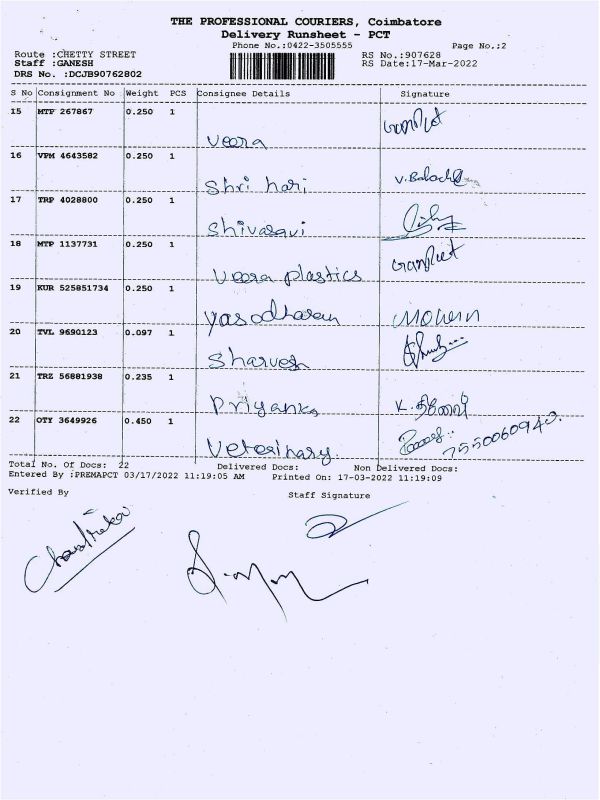 THE PROFESSIONAL COURIERS, Coimbatore
Delivery Runsheet - PCT
Phone No.:0422-3505555 Page No.:2
Route :CHETTY STREET RS No.:907628
Staff :GANESH RS Date:17-Mar-2022
DRS No. :DCJB90762802
S No Consignment No Weight PCS Consignee Details Signature
15 MTP 267867 0.250 1
veera
16 VPM 4643582 0.250 1
Shri hari V. Balach
17 TRP 4028800 0.250 1
Shivaravi
18 MTP 1137731 0.250 1
veera plastics
19 KUR 525851734 0.250 1
Yasodharan
20 TVL 9690123 0.097 1
Sharvesh
21 TRZ 56881938 0.235 1
Priyanka
22 OTY 3649926 0.450 1
Veterinary. 7550060940.
Total No. Of Docs: 22 Delivered Docs: Non Delivered Docs:
Entered By :PREMAPCT 03/17/2022 11:19:05 AM Printed On: 17-03-2022 11:19:09
Verified By Staff Signature